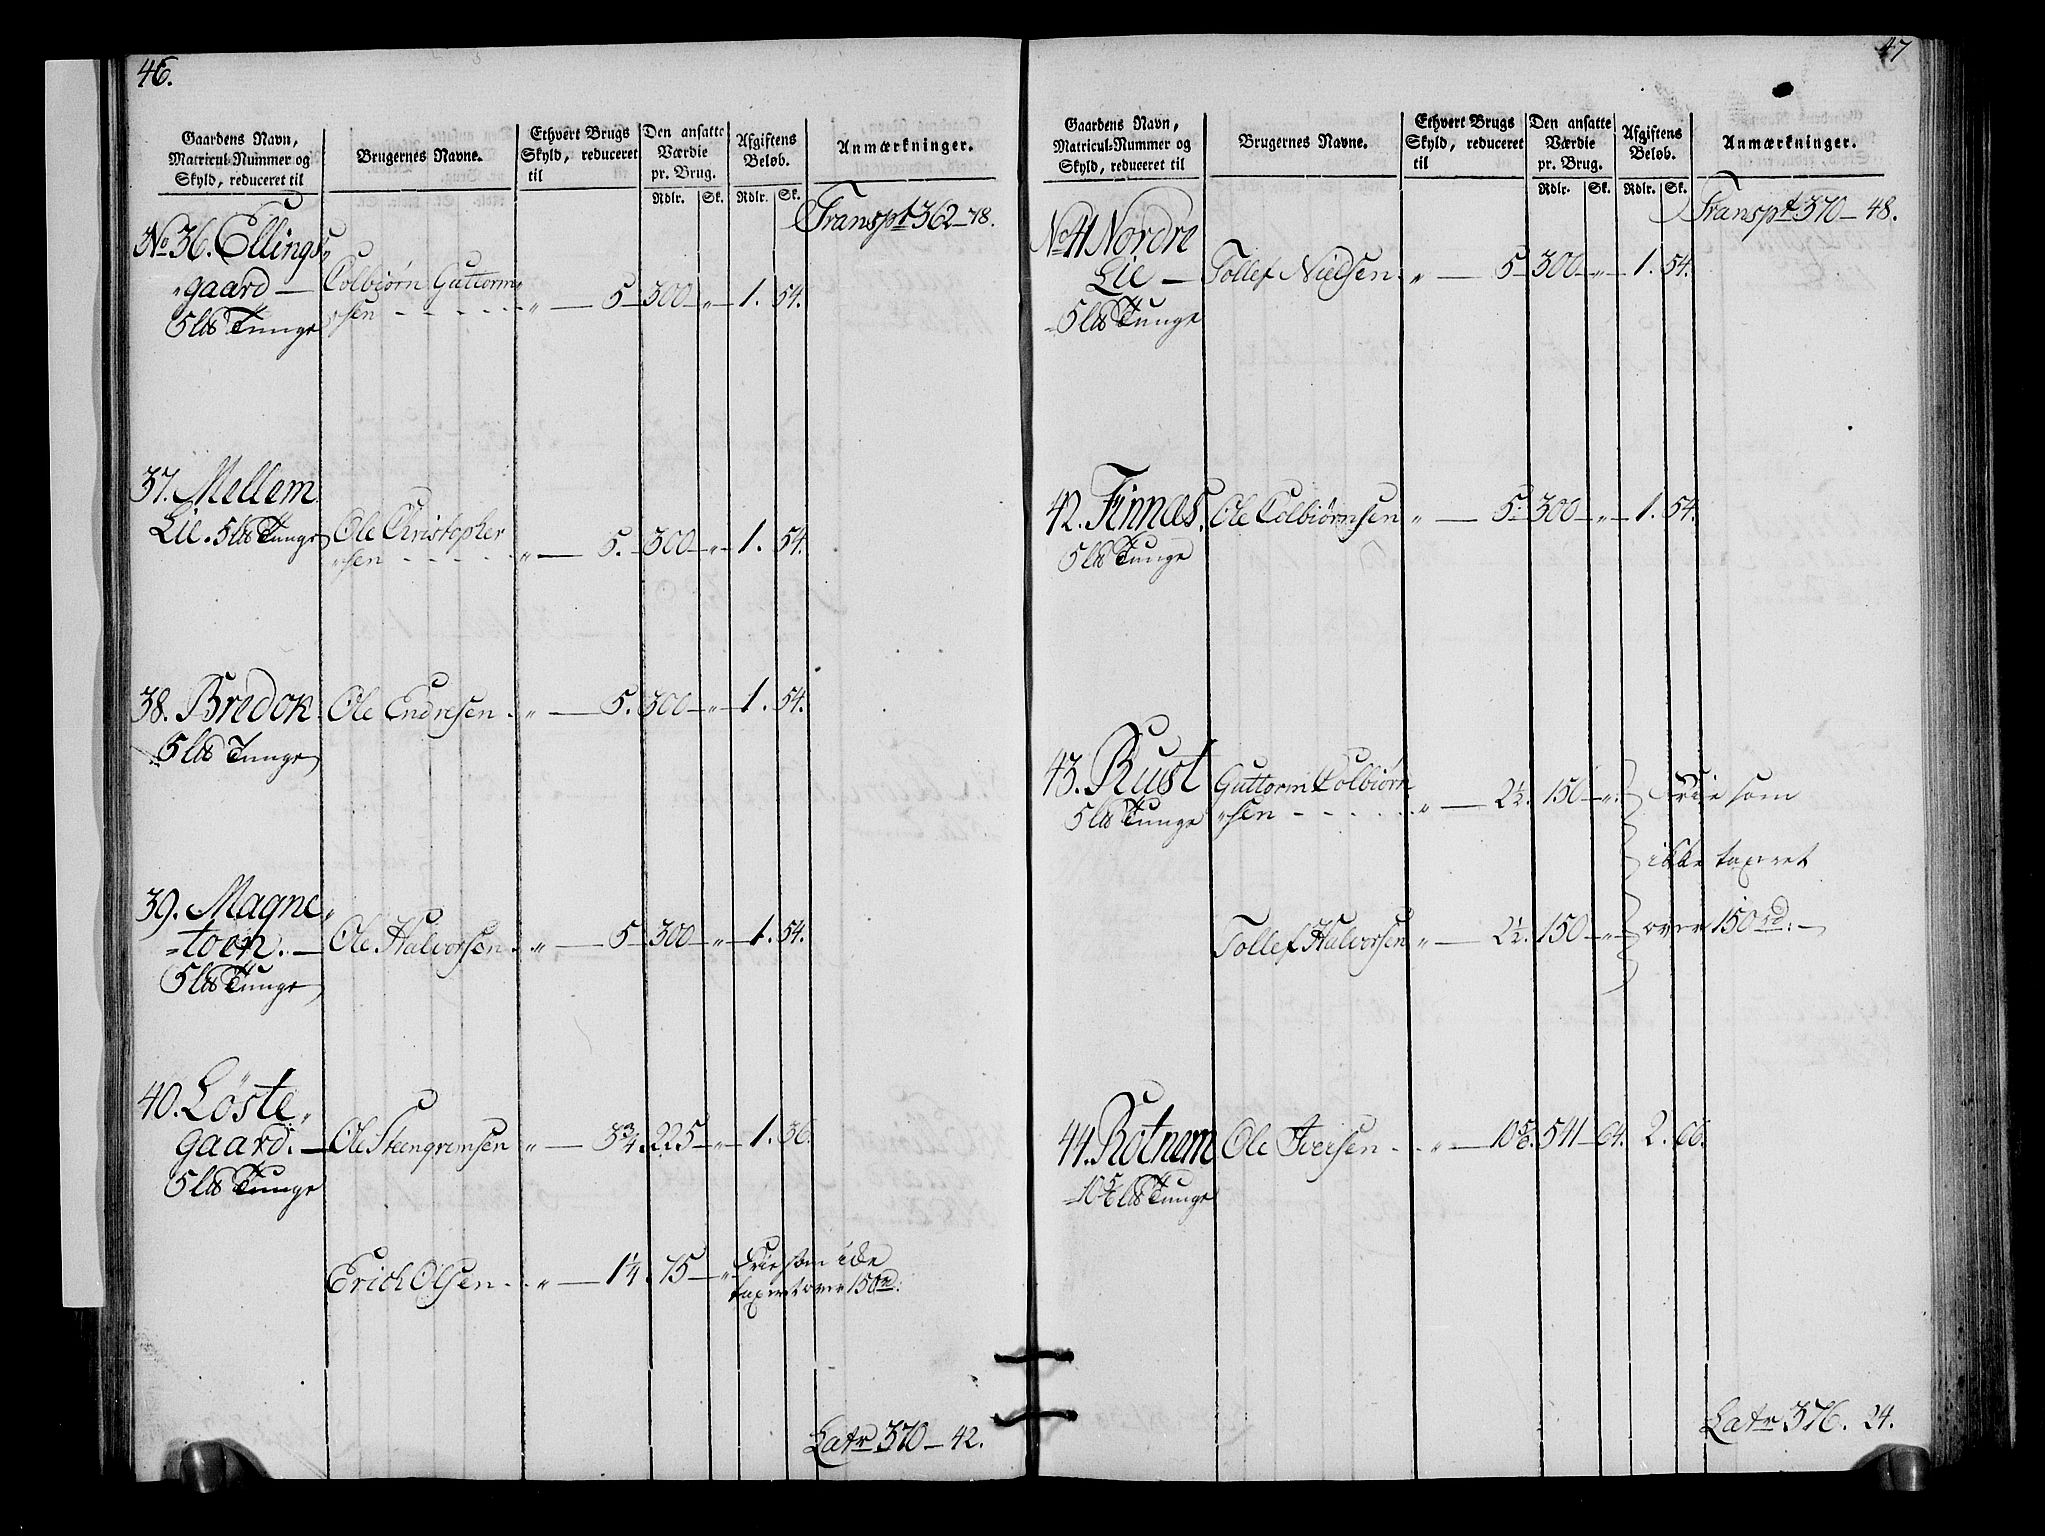 46.
Gaardens Navn,
Matricul-Nummer og
Skyld, reduceret til
Brugernes Navne.
Ethvert Brugs
Skyld, reduceret
til
Den ansatte
Værdie
pr. Brug.
Afgiftens
Beløb.
Anmærkninger.
Rdlr. Sk. Rdlr. Sk.
Transpt 362-78.
No 36. Ellings"
"gaard — Colbiørn Guttorm"
"sen - - - - - " — 5 - 300 - " - 1. 54.
5 lb Tunge
37. Mellem
Lie. 5 lb Tunge Ole Christopher
"sen - - - - - " — 5. - 300 - " - 1. 54.
38. Bredok Ole Endresen. " — 5. 300 - " - 1. 54.
5 lb Tunge
39. Magne"
"toen. — Ole Halvorsen. " — 5 - 300 - " - 1. 54.
5 lb Tunge
40. Løste"
gaard. — Ole Steengrimsen " — 3¾. 225 - " - 1. 36.
5 lb Tunge
Erich Olsen. . " — 1¼. 75 - " - Frie som ikke
taxeret over 150 rd:
Latr 370 - 42.
47
Gaardens Navn,
Matricul-Nummer og
Skyld, reduceret til
Brugernes Navne.
Ethvert Brugs
Skyld, reduceret
til
Den ansatte
Værdie
pr. Brug.
Afgiftens
Beløb.
Anmærkninger.
Rdlr. Sk. Rdlr. Sk.
Transpt 370 - 48.
No 41 Nordre
Lie — Tollef Nielsen. " — 5 - 300 - " - 1. 54.
5 lb Tunge
42. Finnæs. Ole Colbiørnsen " — 5 - 300 - " - 1. 54.
5 lb Tunge
43. Rust Guttorm Colbiørn
"sen - - - - . " — 2½. 150 - ". Frie som
5 lb Tunge
ikke taxeret
Tollef Halvorsen " — 2½. 150 - " over 150 rd: -
44. Rotnem Ole Iversen. . " — 10⅚. 541 - 64. 2. 66.
10⅚ lb Tunge
Latr 376. 24.